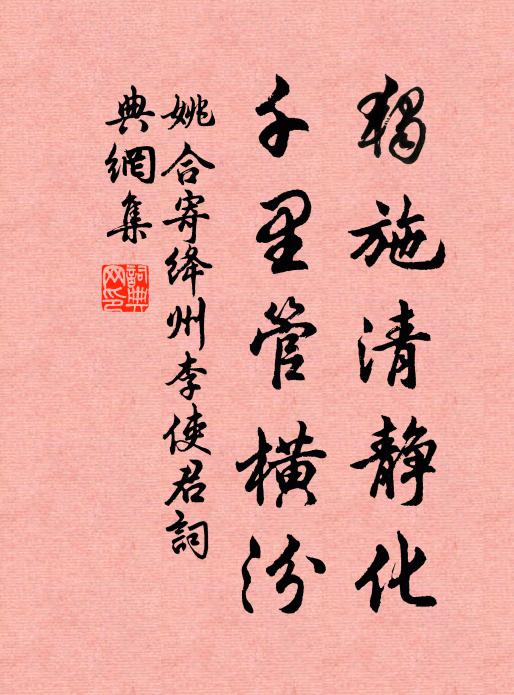 獨施清静化
千里管橫汾
姚合寄絳州李使君詞
典網集
詞典
网印